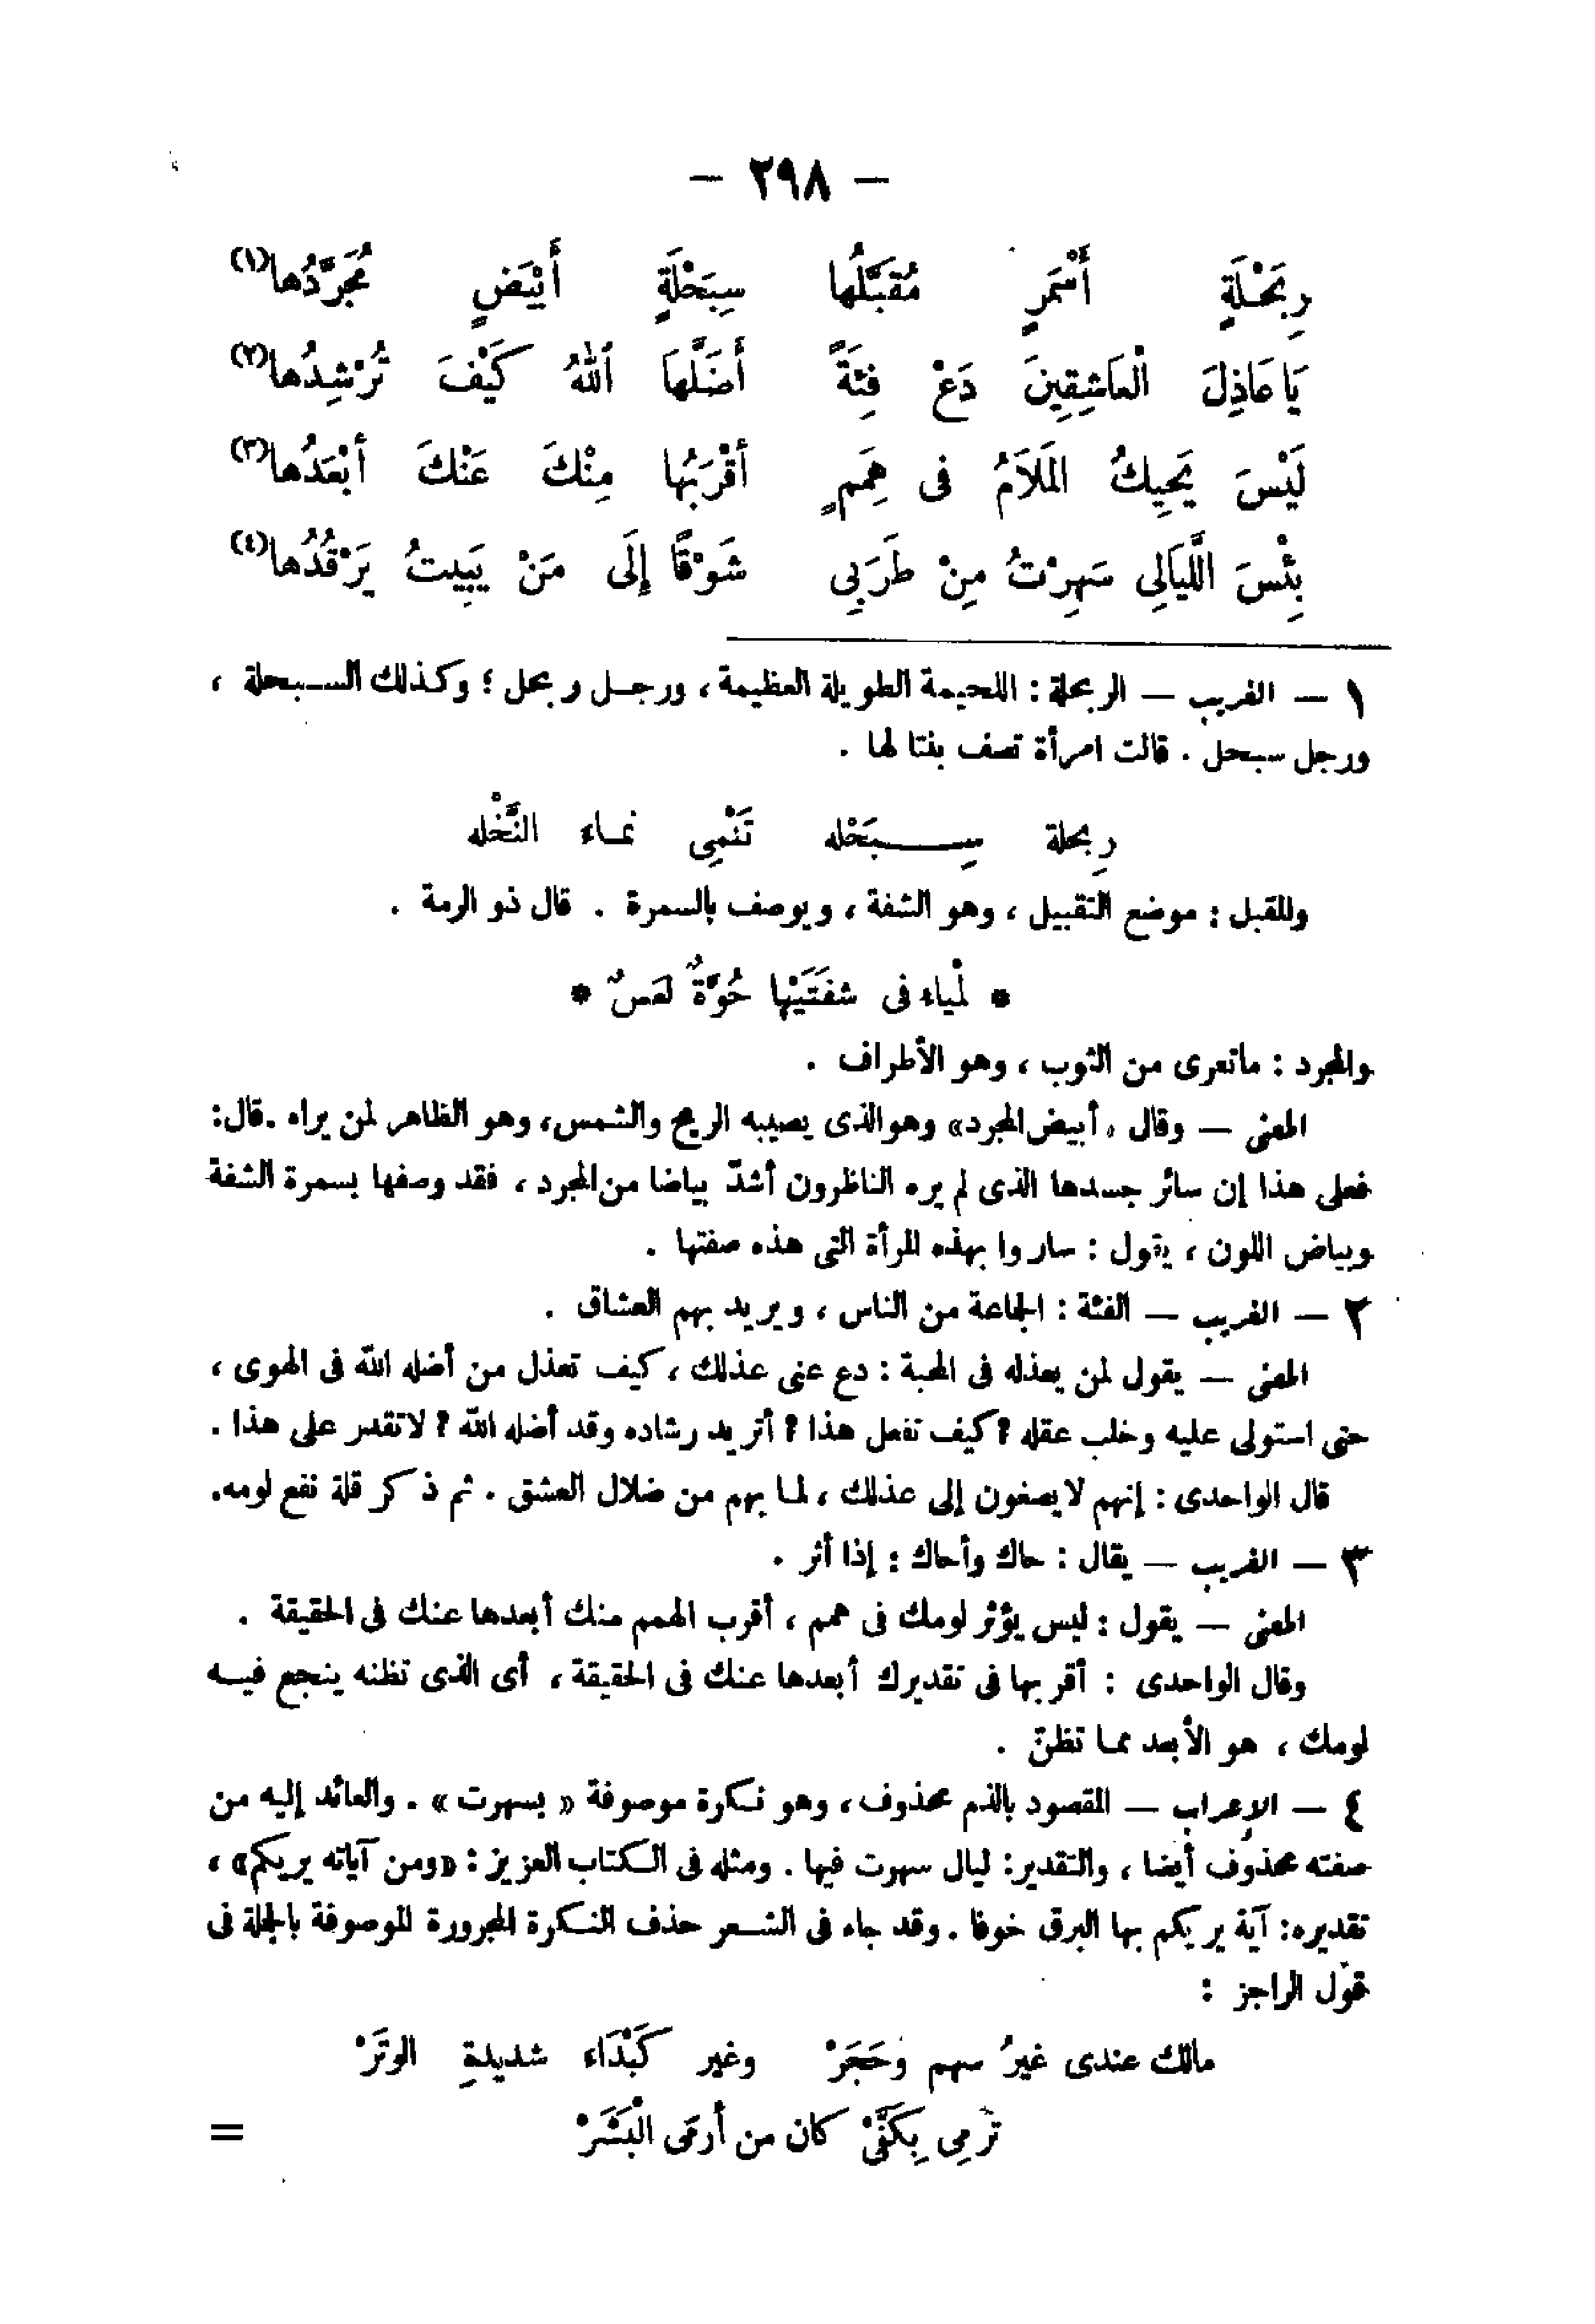 — ٢٩٨ —
رِبَحْلَةٍ أَسْمَرٍ مُقَبَّلُها سِبَحْلَةٍ أَبْيَضٍ مُجَرَّدُها(١)
يَا عَاذِلَ الْعَاشِقِينَ دَعْ فِئَةً أَضَلَّهَا اللهُ كَيْفَ تُرْشِدُها(٢)
لَيْسَ يَحِيكُ المَلاَمُ فى هِمَمٍ أقْرَبُها مِنْكَ عَنْكَ أبْعَدُها(٣)
بِئْسَ اللَّيَالِى سَهِرْتُ مِنْ طَرَبِى شَوْقًا إِلَى مَنْ يَبِيتُ يَرْقُدُها(٤)
١ — الغريب — الربحلة : اللحيمة الطويلة العظيمة ، ورجل ربحل ؛ وكذلك السبحلة ،
ورجل سبحل . قالت امرأة تصف بنتا لها .
رِبحلة سِبَحْله تَنْمِى نماء النَّخْله
والمقبل : موضع التقبيل ، وهو الشفة ، ويوصف بالسمرة . قال ذو الرمة .
* لَمْياء فى شفَتَيْها حُوَّةٌ لعَسٌ *
والمجرد : ماتعرى من الثوب ، وهو الأطراف .
المعنى — وقال « أبيض المجرد» وهو الذى يصيبه الريح والشمس، وهو الظاهر لمن يراه .قال:
فعلى هذا إن سائر جسدها الذى لم يره الناظرون أشدّ بياضا من المجرد ، فقد وصفها بسمرة الشفة
وبياض اللون ، يقول : ساروا بهذه المرأة التى هذه صفتها .
٢ — الغريب — الفئة : الجماعة من الناس ، ويريد بهم العشاق .
المعنى — يقول لمن يعذله فى المحبة : دع عنى عذلك ، كيف تعذل من أضله الله فى الهوى ،
حتى استولى عليه وخلب عقله ؟ كيف تفعل هذا ؟ أتريد رشاده وقد أضله الله ؟ لاتقدر على هذا .
قال الواحدى : إنهم لايصغون إلى عذلك ، لما بهم من ضلال العشق . ثم ذكر قلة نفع لومه.
٣ — الغريب — يقال : حاك وأحاك : إذا أثر .
المعنى — يقول : ليس يؤثر لومك فى همم ، أقرب الهمم منك أبعدها عنك فى الحقيقة .
وقال الواحدى : أقربها فى تقديرك أبعدها عنك فى الحقيقة ، أى الذى تظنه ينجع فيه
لومك ، هو الأبعد مما تظنّ .
٤ — الإعراب — المقصود بالذم محذوف، وهو نكرة موصوفة « بسهرت » . والعائد إليه من
صفته محذوف أيضا ، والتقدير: ليال سهرت فيها . ومثله فى الكتاب العزيز : «ومن آياته يريكم» ،
تقديره: آية يريكم بها البرق خوفا . وقد جاء فى الشعر حذف النكرة المجرورة الموصوفة بالجملة فى
قول الراجز :
مالك عندى غيرُ سهم وَحَجَرْ وغير كَبْدَاء شديدةِ الوتَرْ
تَرْمِى بِكَفَّىْ كان من أرمَى الْبَشَرْ =